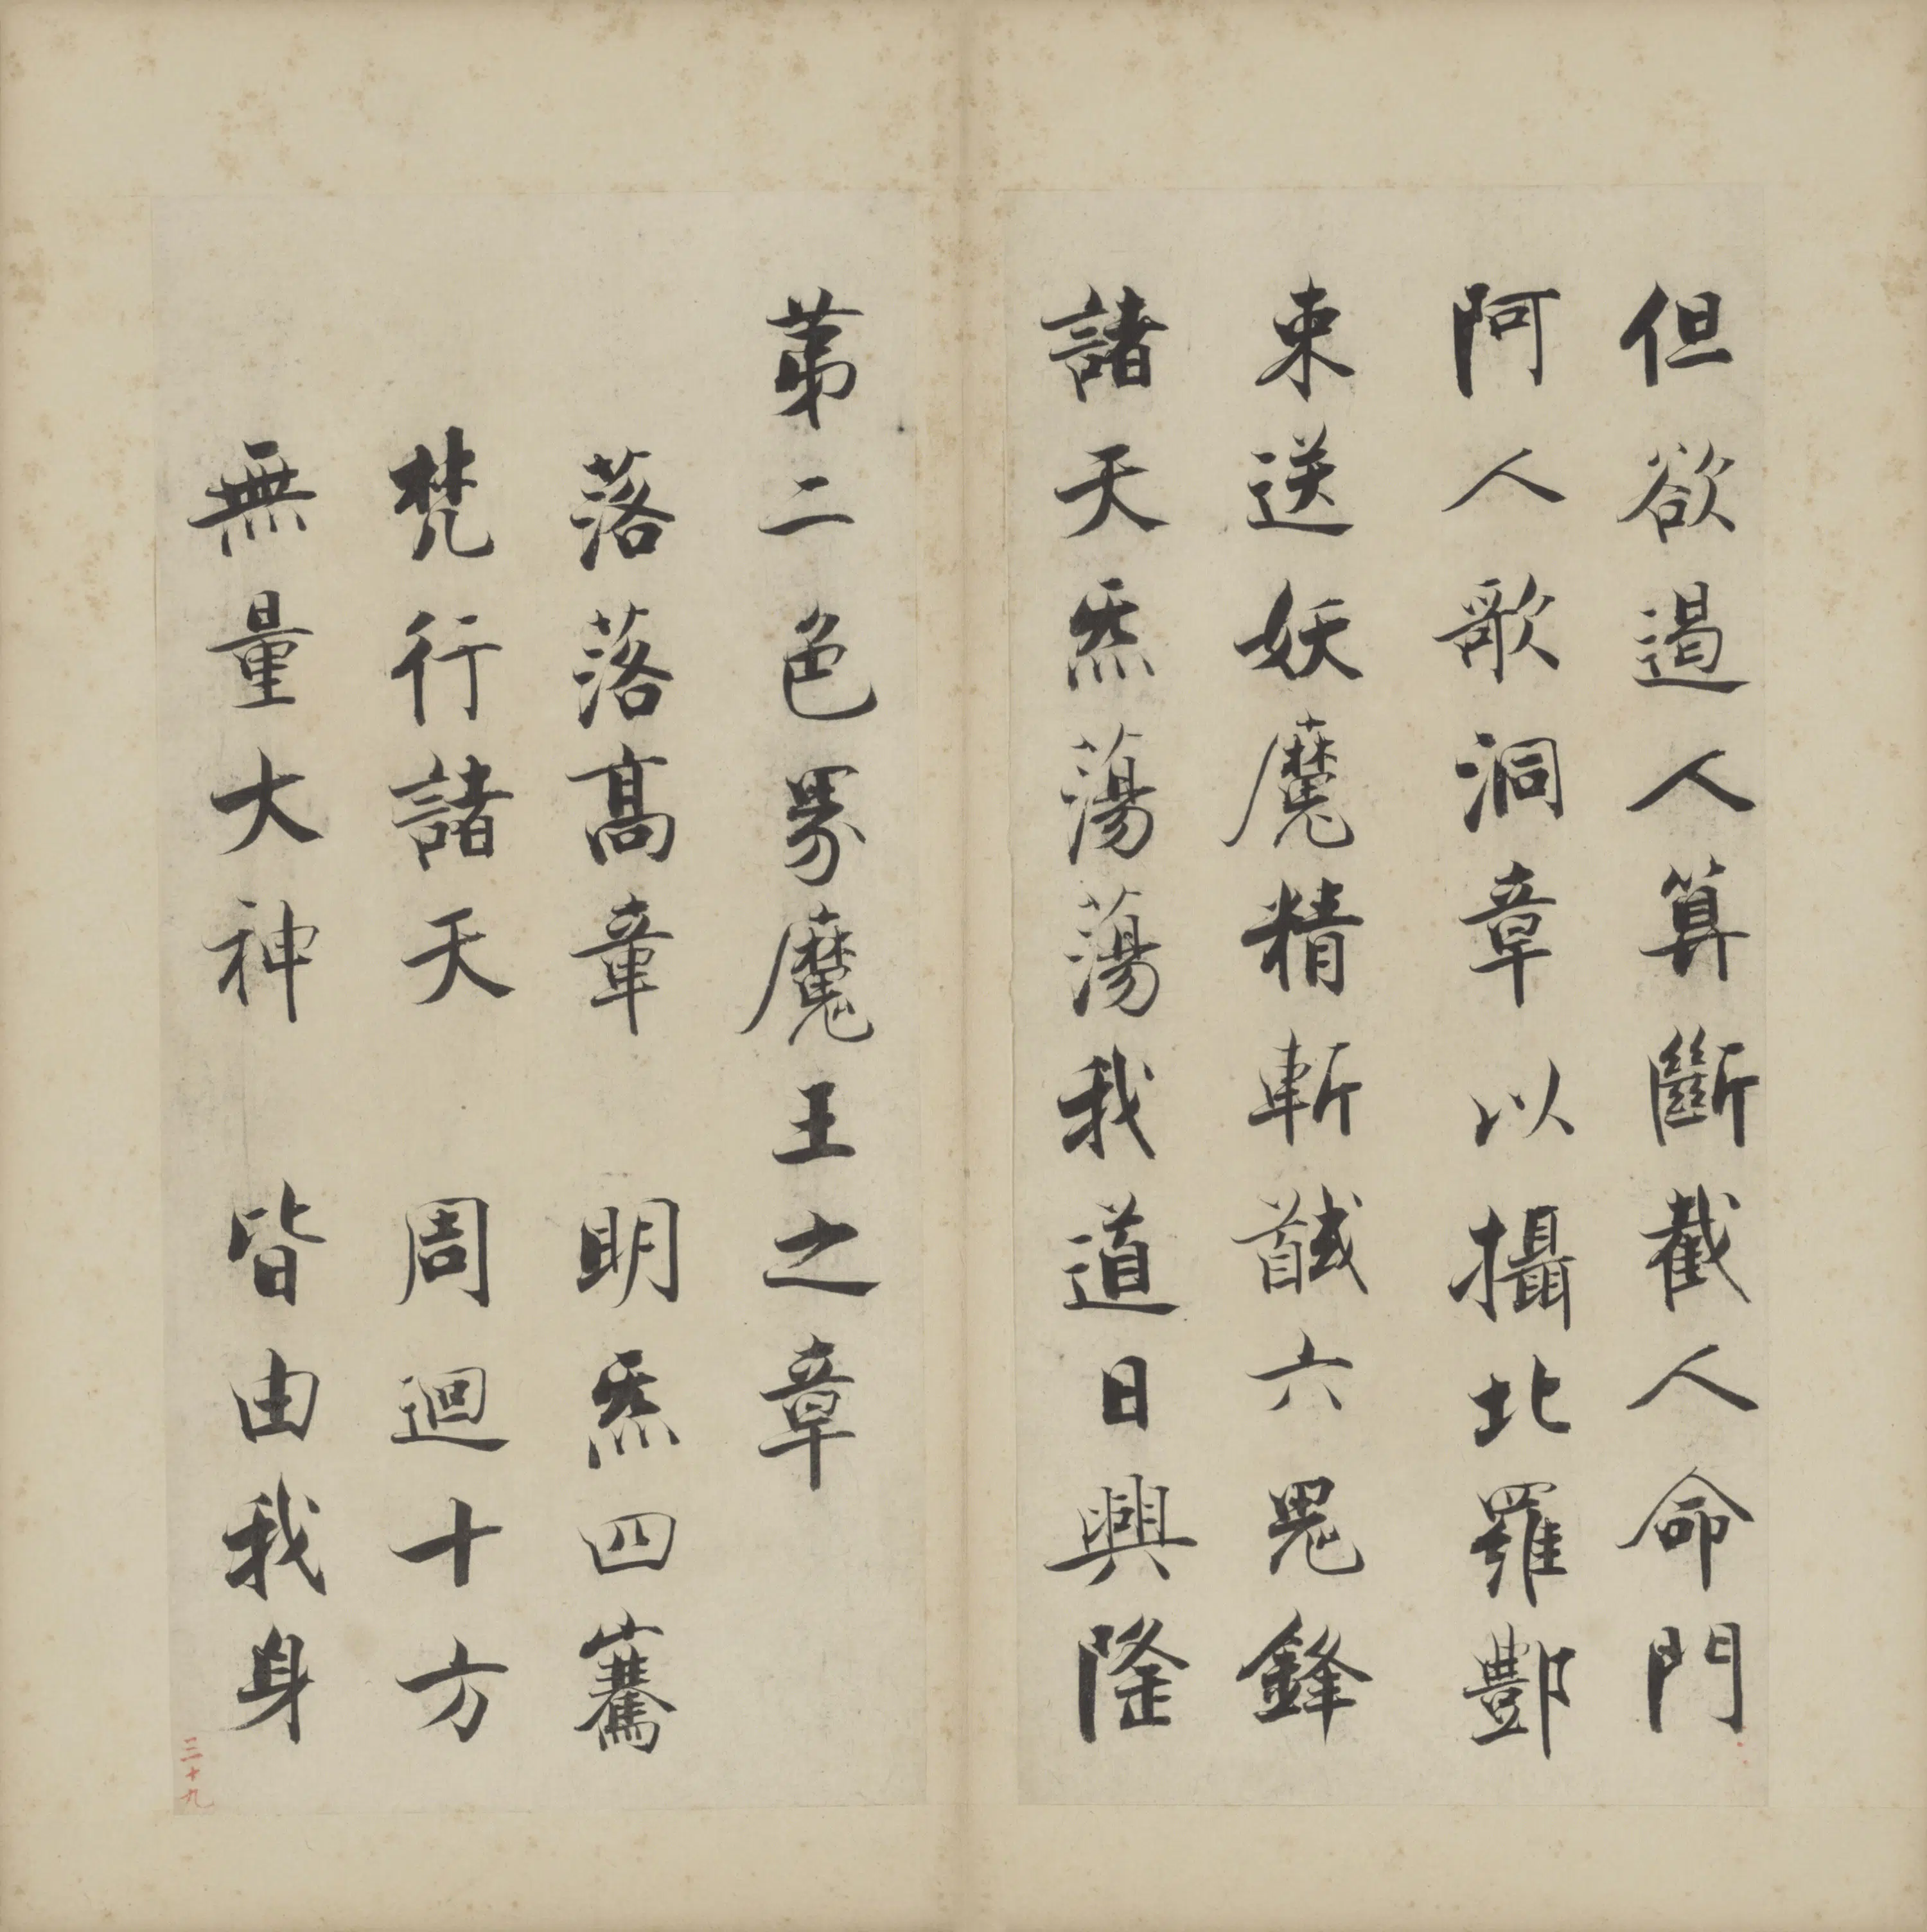 但欲遏人算斷截人命門
阿人歌洞章以攝北羅酆
束送妖魔精斬馘六鬼鋒
諸天炁蕩蕩我道日興隆
苐二色界魔王之章
落落髙章 明炁四騫
梵行諸天 周迴十方
無量大神 皆由我身
三十九